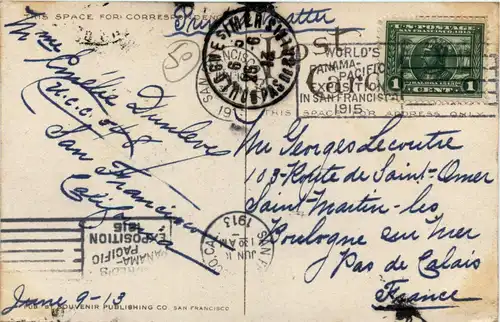 THIS SPACE FOR CORRESPONDENCE
Post Card
Mme Amélie Dunleve
San Francisco
June 9-13
BOULOGNE S MER
WORLD'S
PANAMA-
PACIFIC
EXPOSITION
IN SAN FRANCISCO
1915.
U.S. POSTAGE
SAN FRANCISCO 1915
1 CENT 1
THIS SPACE FOR ADDRESS ONLY
Mr Georges Lecoutre
103-Route de Saint-Omer
Saint-Martin-les
Boulogne sur Mer
Pas de Calais
France
1913
JUN 11
1 30 AM
WORLD'S
PANAMA-
PACIFIC
EXPOSITION
1915
PUB. BY SOUVENIR PUBLISHING CO. SAN FRANCISCO